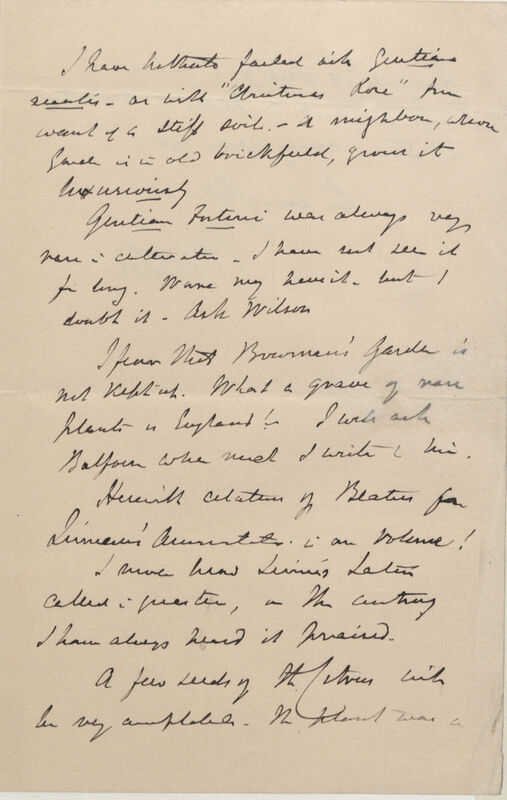 I have hitherto failed with Gentiana
acaulis - or with "Christmas Rose" for
want of a stiff soil. - A neighbour, whose
Garden is in old brickfield, grows it
luxuriously
Gentian Fortuni was always very
rare in cultivation - I have not seen it
for long. Ware may have it - but I
doubt it - Ask Wilson
I fear that Bowman's Garden is
not kept up. What a grave of rare
plants is England! - I will ask
Balfour when next I write to him.
Herewith citations of for
Linnaeus's in our volume!
I never heard Latin
called in question, on the contrary
I have always heard it praised.
A few seeds of the with
be very acceptable - The plant was a